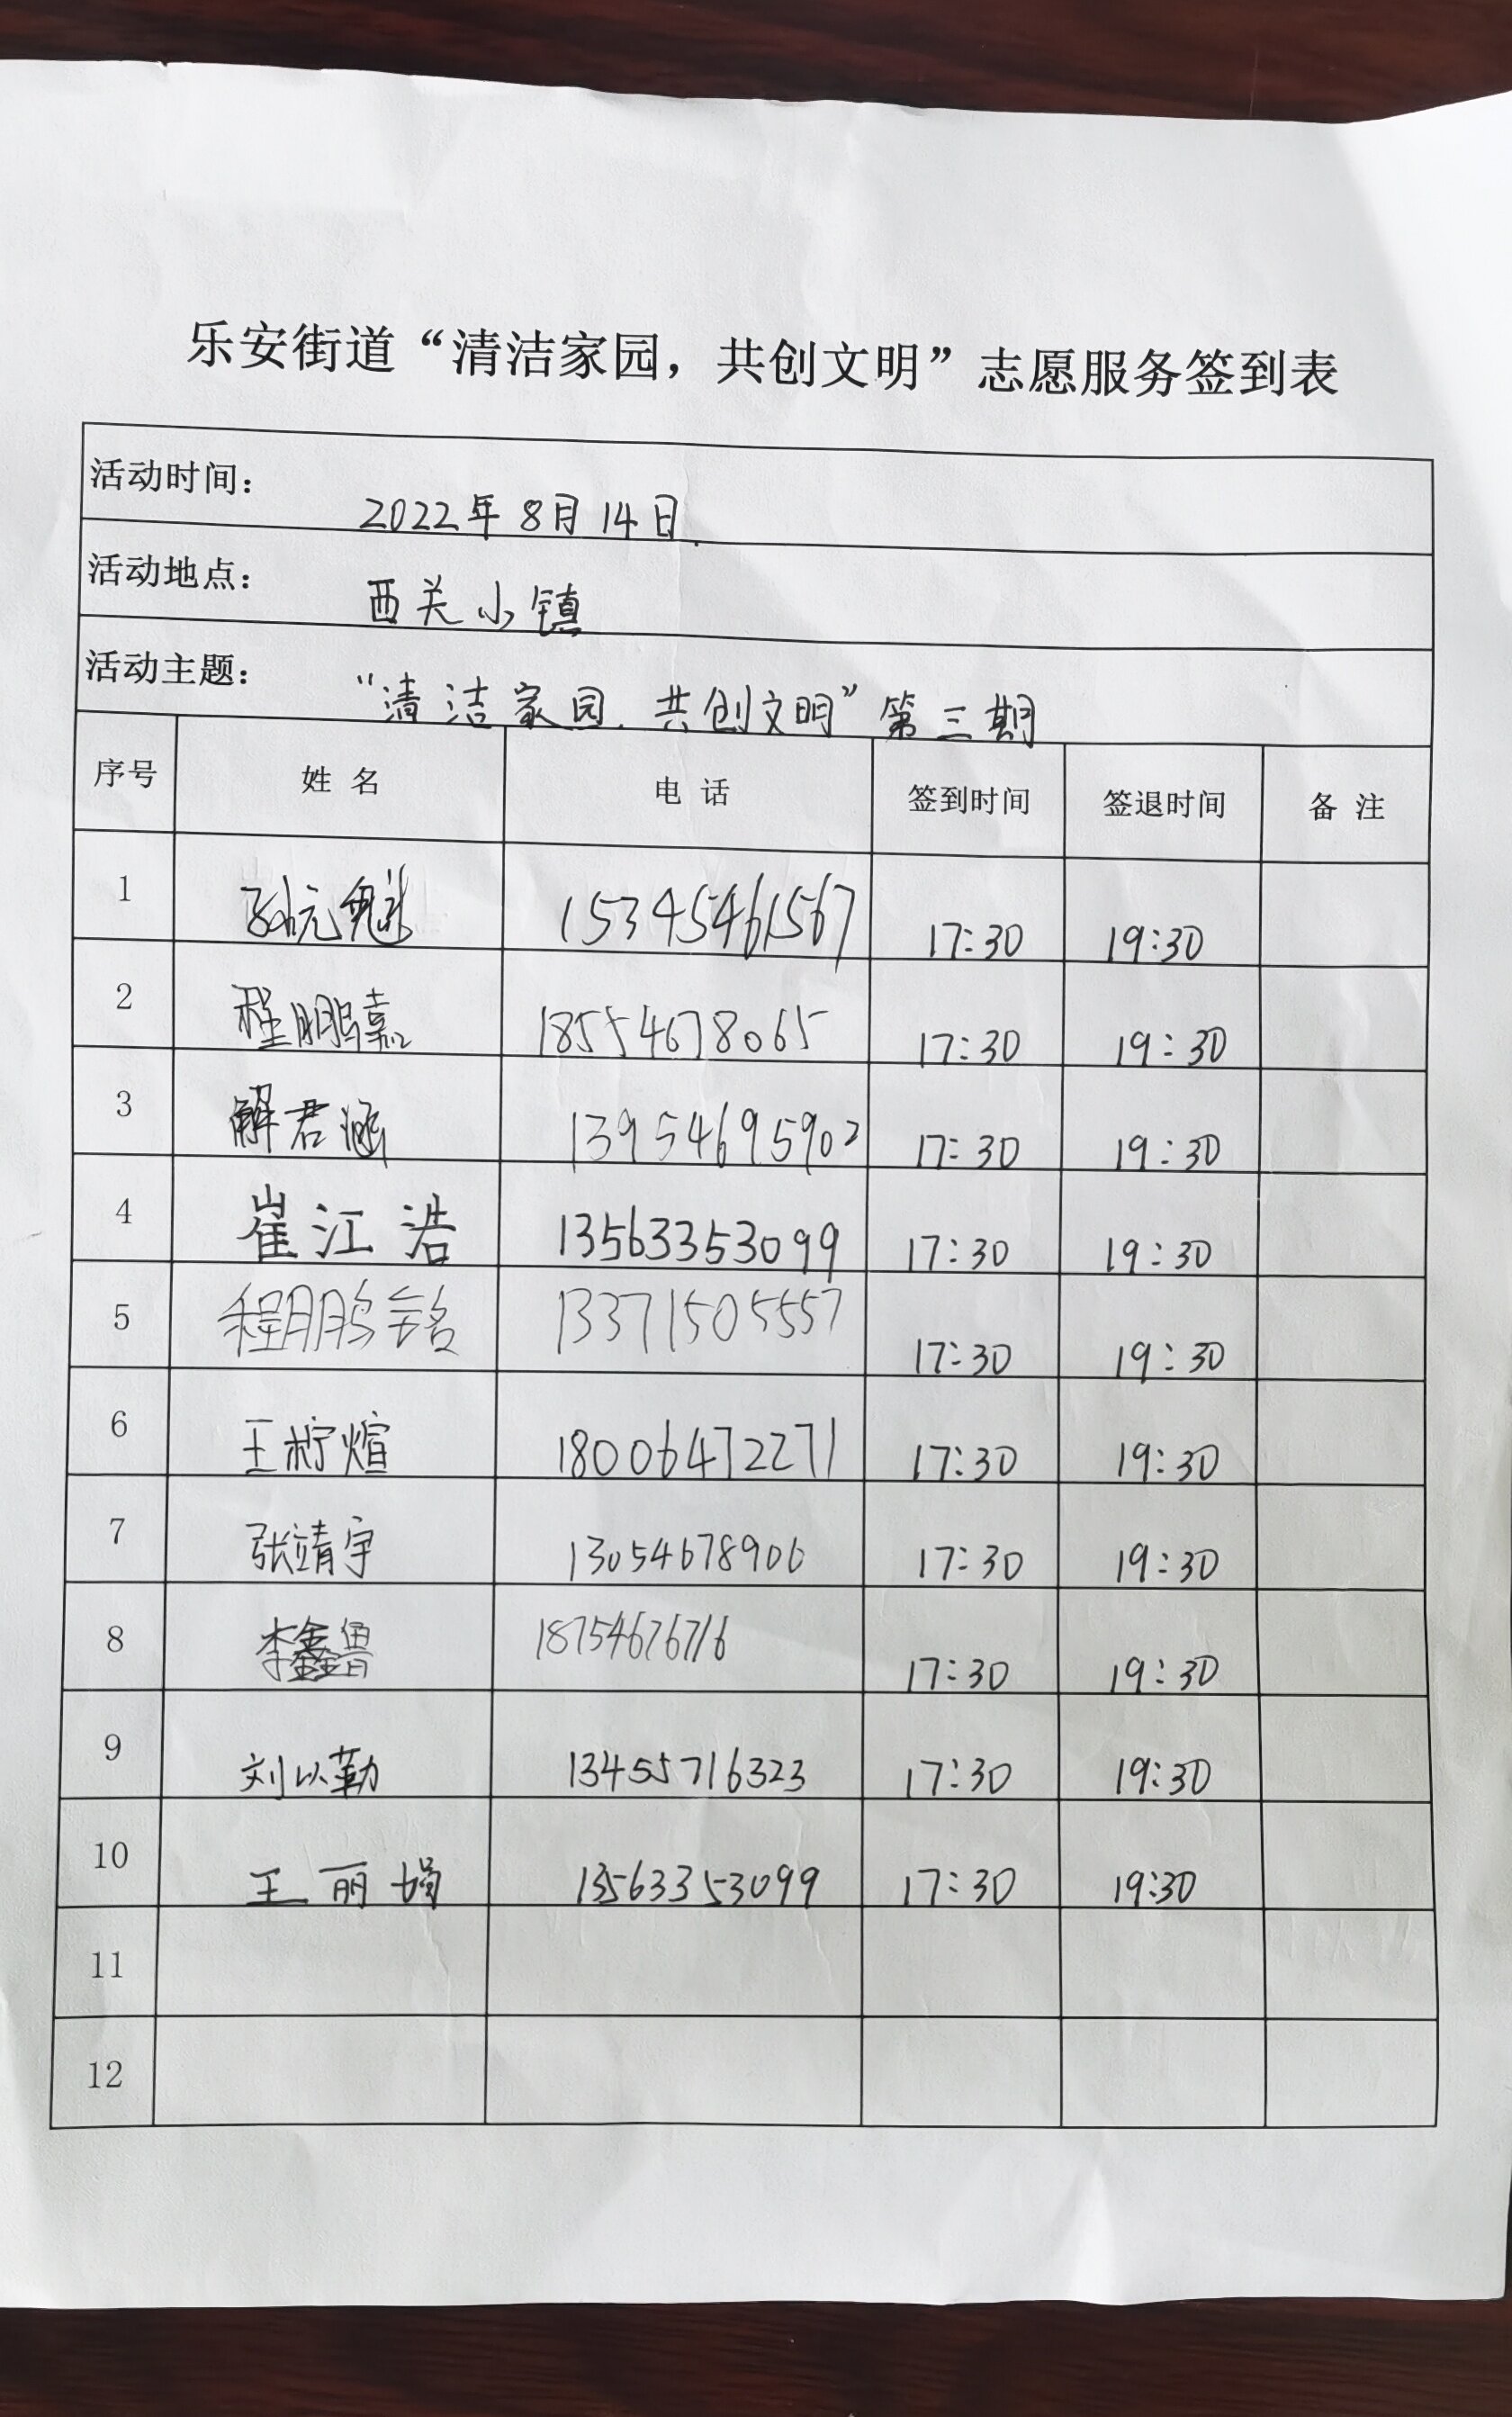 乐安街道“清洁家园，共创文明”志愿服务签到表
活动时间： 2022年8月14日
活动地点： 西关小镇
活动主题： “清洁家园.共创文明”第三期
序号 姓名 电话 签到时间 签退时间 备注
1 孙元魁 15345461567 17:30 19:30
2 程鹏嘉 18554678065 17:30 19:30
3 解君涵 13954695902 17:30 19:30
4 崔江浩 13563353099 17:30 19:30
5 程鹏铭 13371505557 17:30 19:30
6 王柠煊 18006472271 17:30 19:30
7 张靖宇 13054678906 17:30 19:30
8 李鑫鲁 18754676716 17:30 19:30
9 刘以勤 13455716323 17:30 19:30
10 王丽娟 13563353099 17:30 19:30
11
12